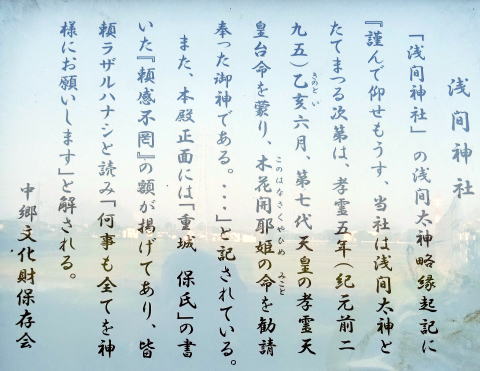 浅間神社
「浅間神社」の浅間太神略縁起記に
『謹んで仰せもうす、当社は浅間太神と
たてまつる次第は、孝霊五年(紀元前二
九五)乙亥六月、第七代天皇の孝霊天
きのとい
皇台命を蒙り、木花開耶姫の命を勧請
このはなさくやひめ みこと
奉った御神である。・・・」と記されている。
また、本殿正面には「重城 保氏」の書
いた『頼感不罔』の額が掲げてあり、皆
頼ラザルハナシと読み「何事も全てを神
様にお願いします」と解される。
中郷文化財保存会